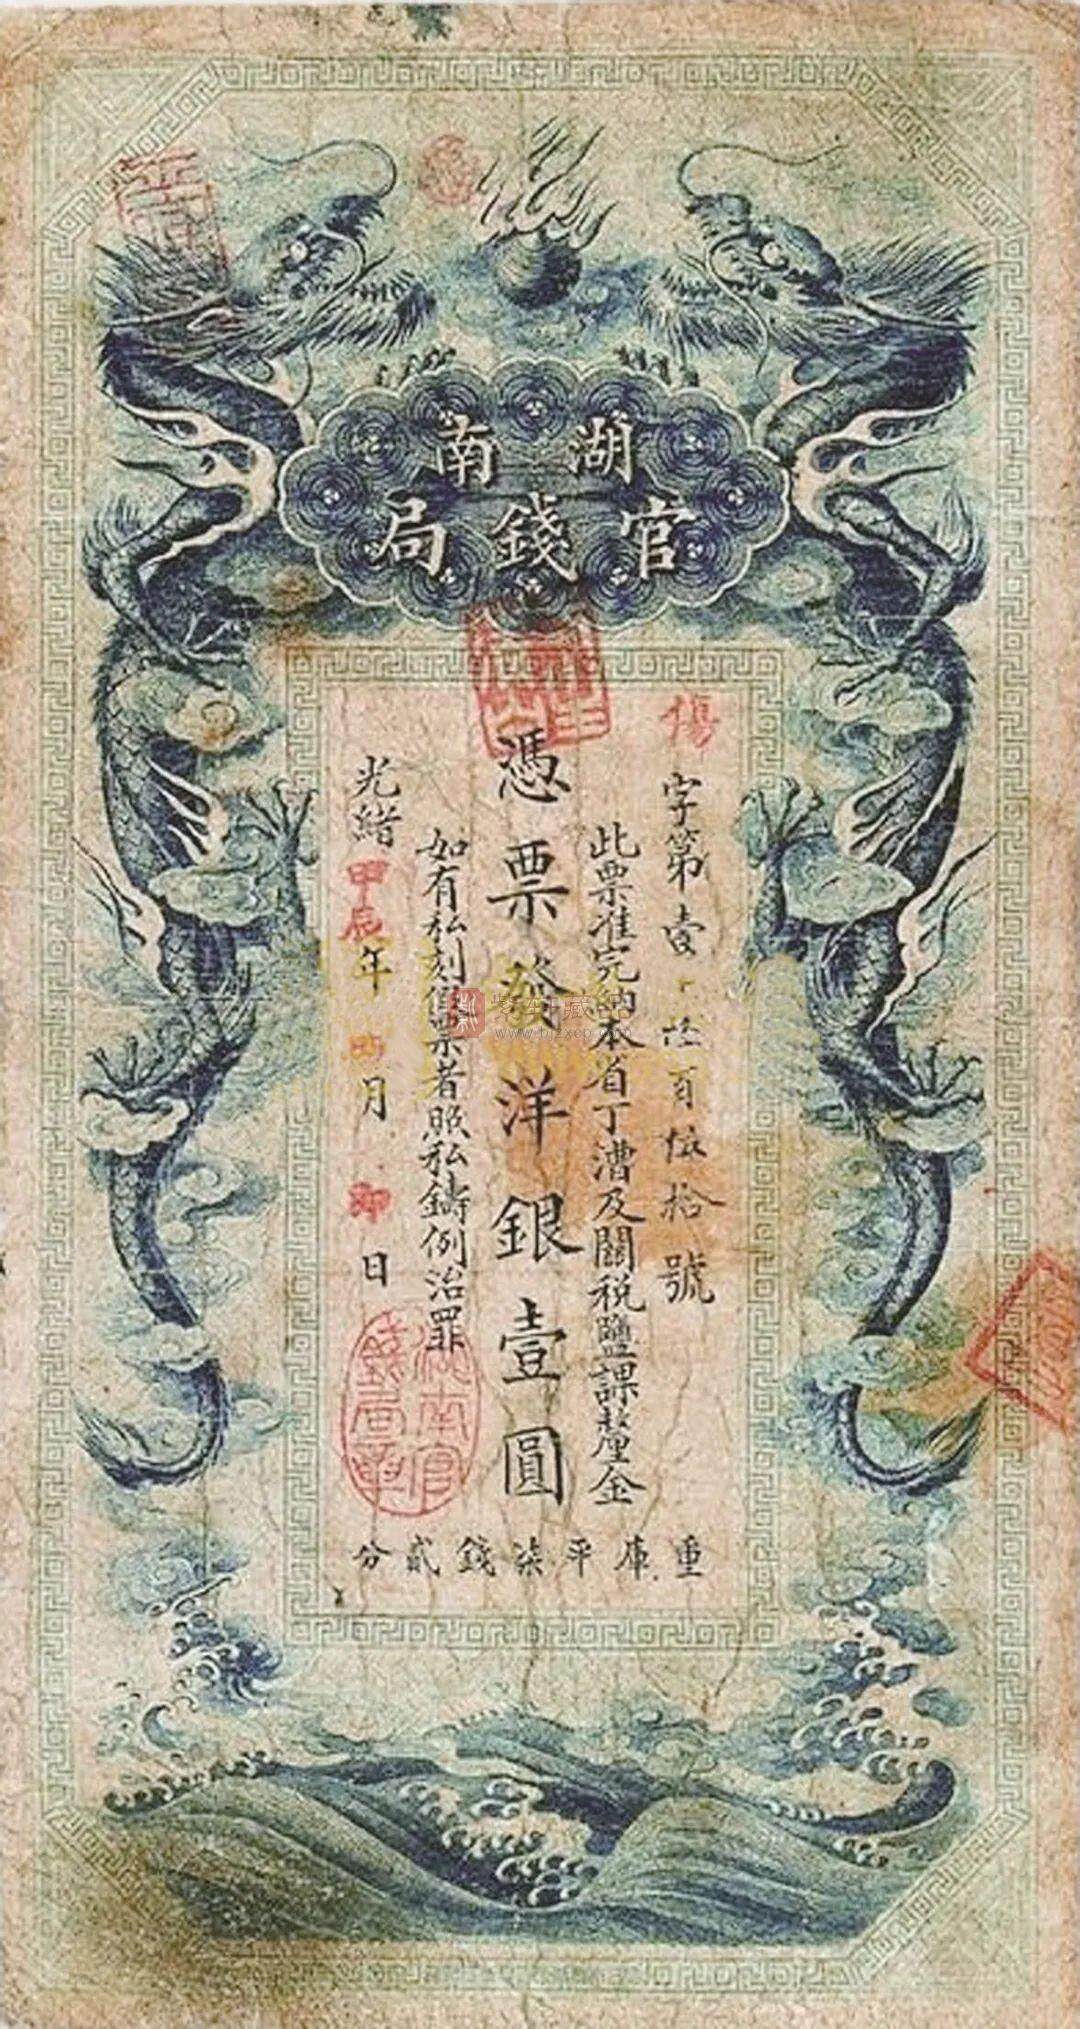 湖南
官錢局
字第壹
百伍拾號
此票准完納本省丁漕及關税鹽課釐金
憑票發洋銀壹圓
如有私刻假票者照私鑄例治罪
光緒甲辰年 月 日
重庫平柒錢貳分
湖南官錢局章
www.hjzxep.com